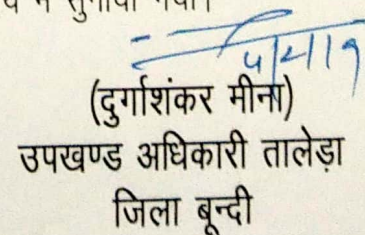 में सुनाया गया।
(दुर्गाशंकर मीना)
उपखण्ड अधिकारी तालेड़ा
जिला बून्दी